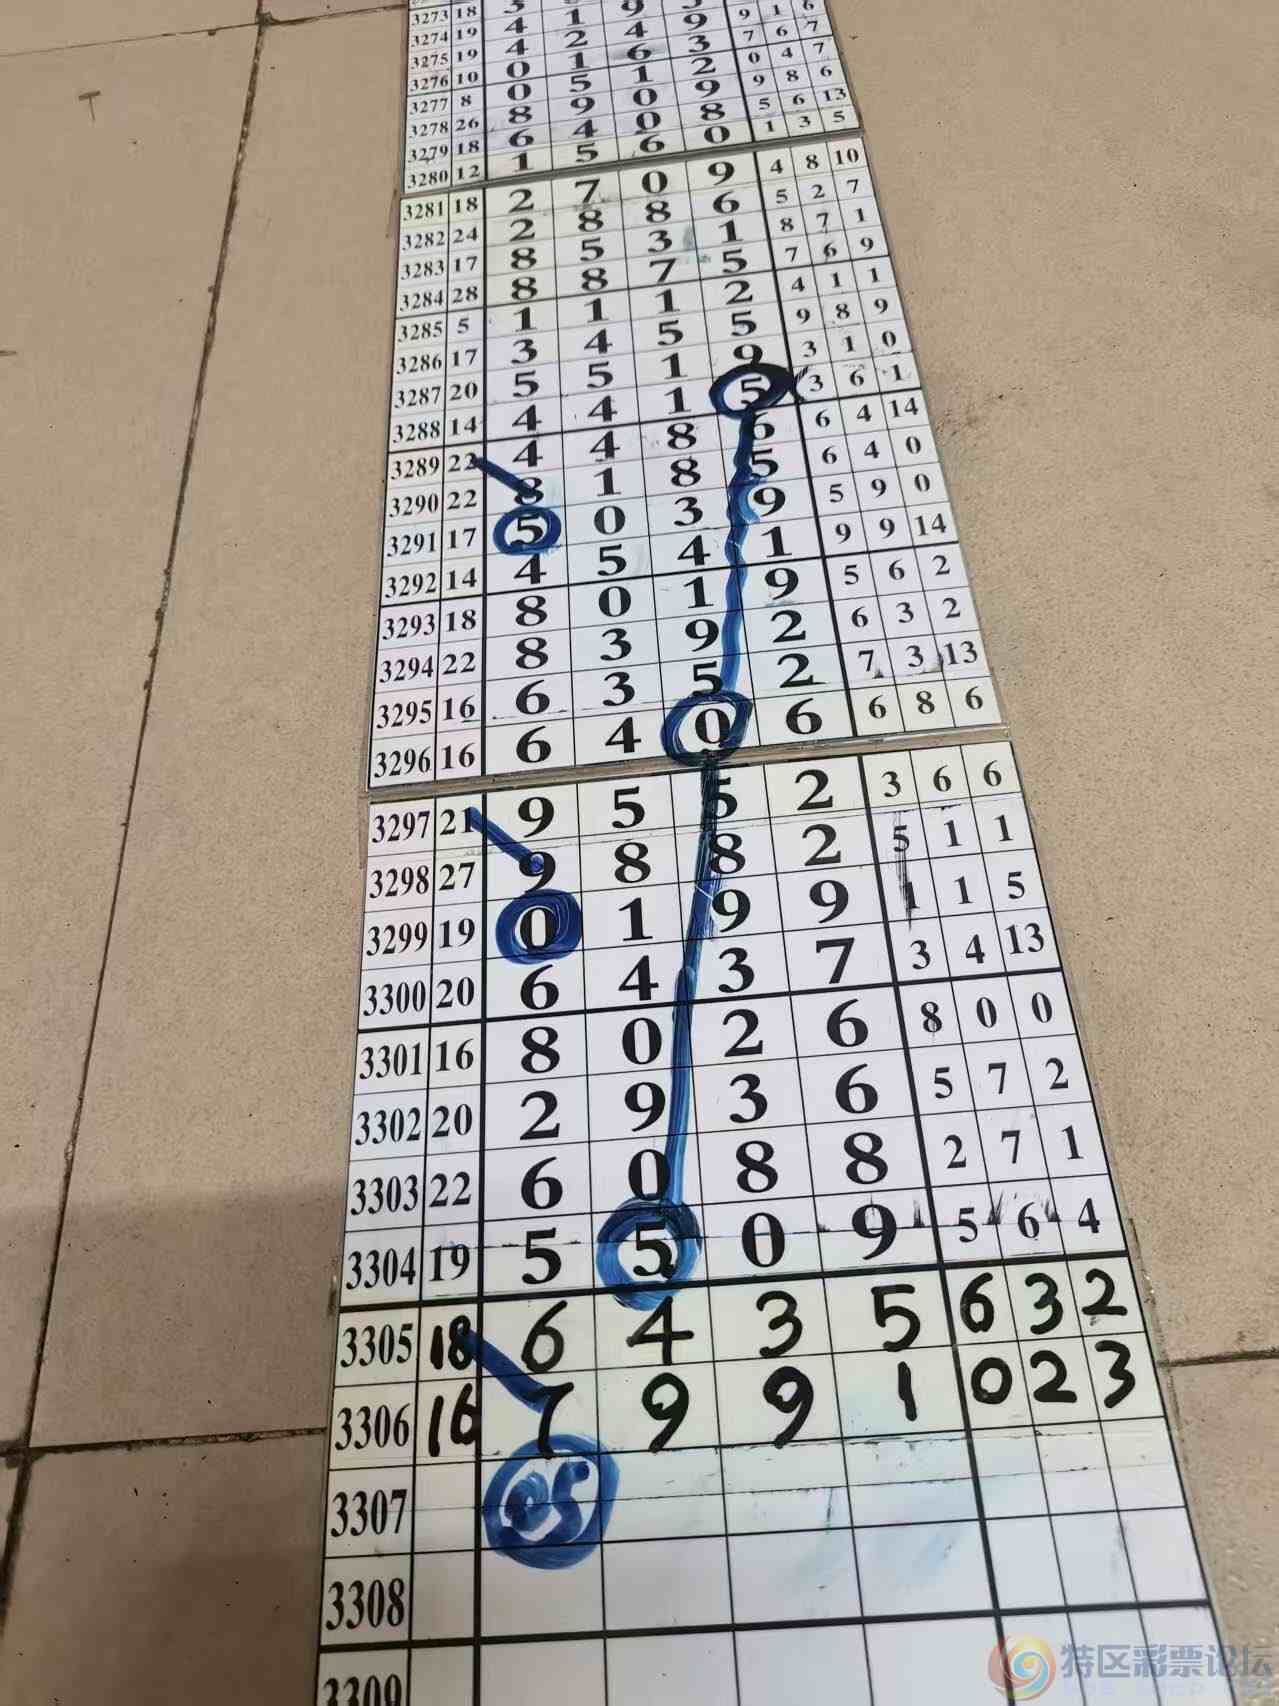 3273 18
3274 19 4 1 9
3275 19 4 2 4 9 9 1 6
3276 10 0 1 6 3 7 6 7
3277 8 0 5 1 2 0 4 7
3278 26 8 9 0 9 9 8 6
3279 18 6 4 0 8 5 6 13
3280 12 1 5 6 0 1 3 5
3281 18 2 7 0 9 4 8 10
3282 24 2 8 8 6 5 2 7
3283 17 8 5 3 1 8 7 1
3284 28 8 8 7 5 7 6 9
3285 5 1 1 1 2 4 1 1
3286 17 3 4 5 5 9 8 9
3287 20 5 5 1 9 3 1 0
3288 14 4 4 1 5 3 6 1
3289 22 4 4 8 6 6 4 14
3290 22 8 1 8 5 6 4 0
3291 17 5 0 3 9 5 9 0
3292 14 4 5 4 1 9 9 14
3293 18 8 0 1 9 5 6 2
3294 22 8 3 9 2 6 3 2
3295 16 6 3 5 2 7 3 13
3296 16 6 4 0 6 6 8 6
3297 21 9 5 5 2 3 6 6
3298 27 9 8 8 2 5 1 1
3299 19 0 1 9 9 1 1 5
3300 20 6 4 3 7 3 4 13
3301 16 8 0 2 6 8 0 0
3302 20 2 9 3 6 5 7 2
3303 22 6 0 8 8 2 7 1
3304 19 5 5 0 9 5 6 4
3305 18 6 4 3 5 6 3 2
3306 16 7 9 9 1 0 2 3
3307 05
3308
3309
特区彩票论坛